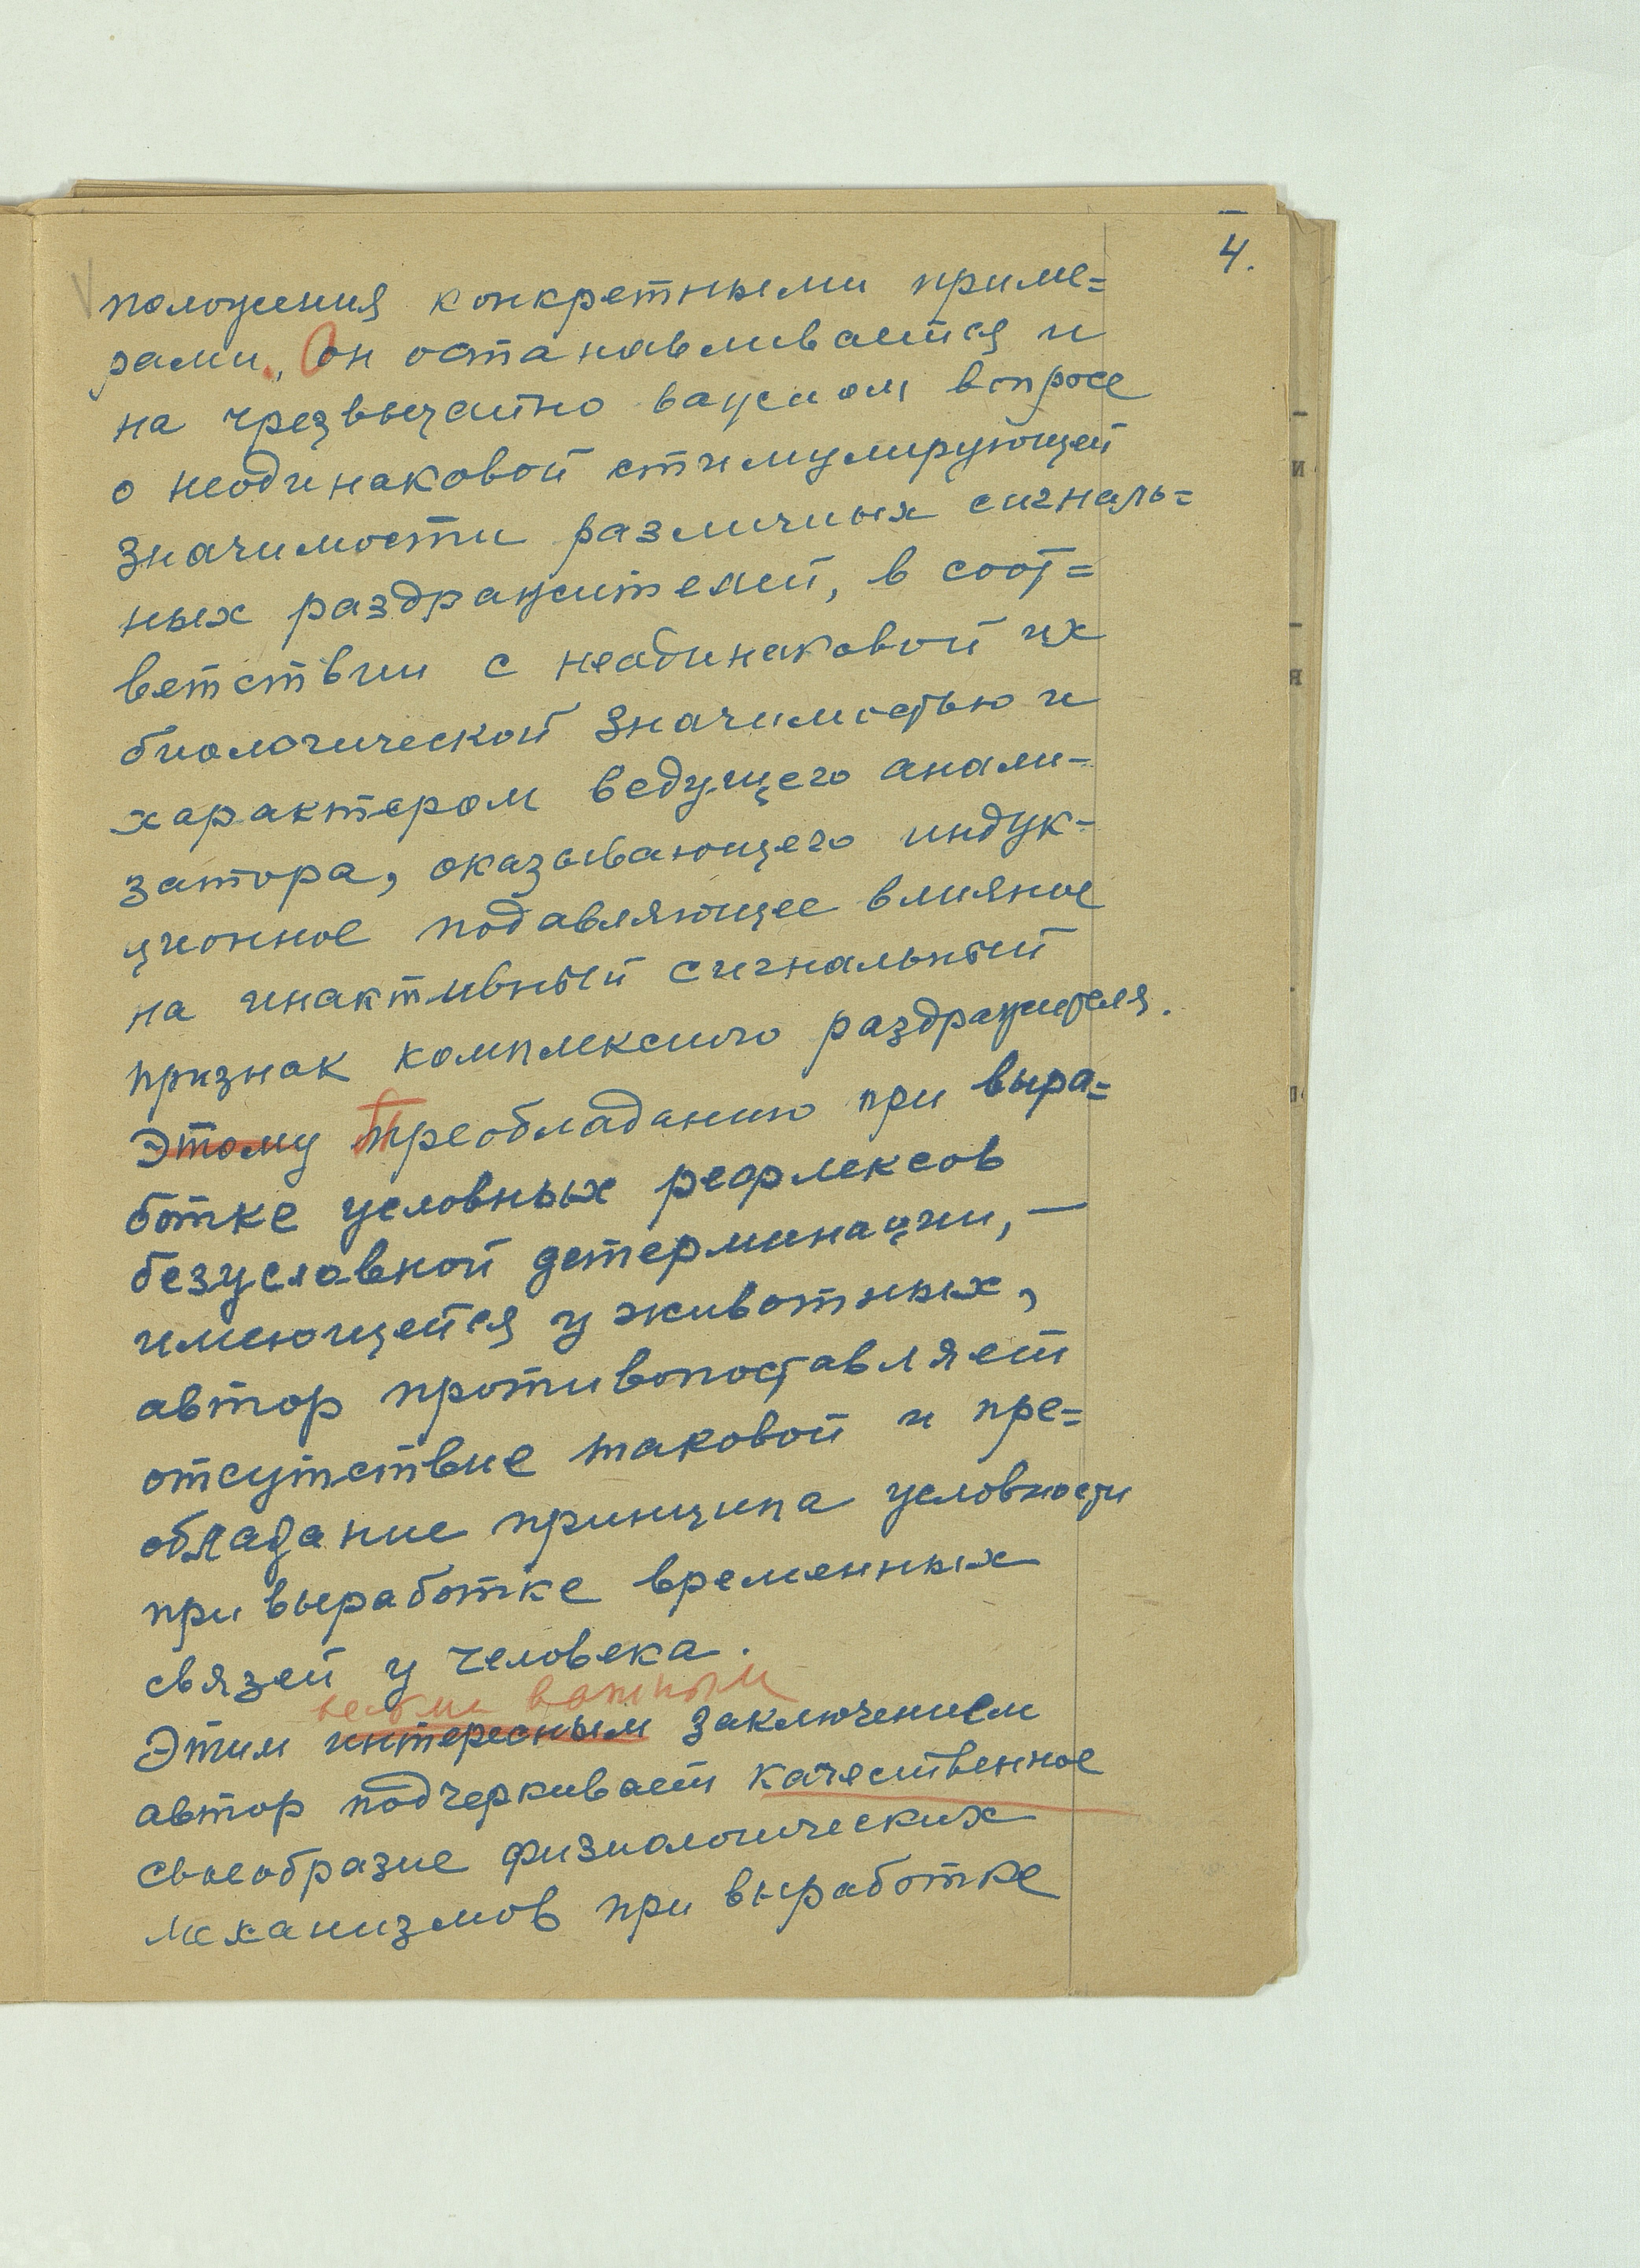 4.
положения конкретными приме=
рами. Он останавливается и
на чрезвычайно важном вопросе
о неодинаковой стимулирующей
значимости различных сигналь=
ных раздражителей, в соот=
ветствии с неодинаковой их
биологической значимостью и
характером ведущего анали-
затора, оказывающего индук-
ционное подавляющее влияние
на инактивный сигнальный
признак комплексного раздражителя.
Этому Преобладанию при выра=
ботке условных рефлексов
безусловной детерминации, —
имеющейся у животных,
автор противопоставляет
отсутствие таковой и пре=
обладание принципа условности
при выработке временных
связей у человека.
весьма важным
Этим интересным заключением
автор подчеркивает качественное
своеобразие физиологических
механизмов при выработке